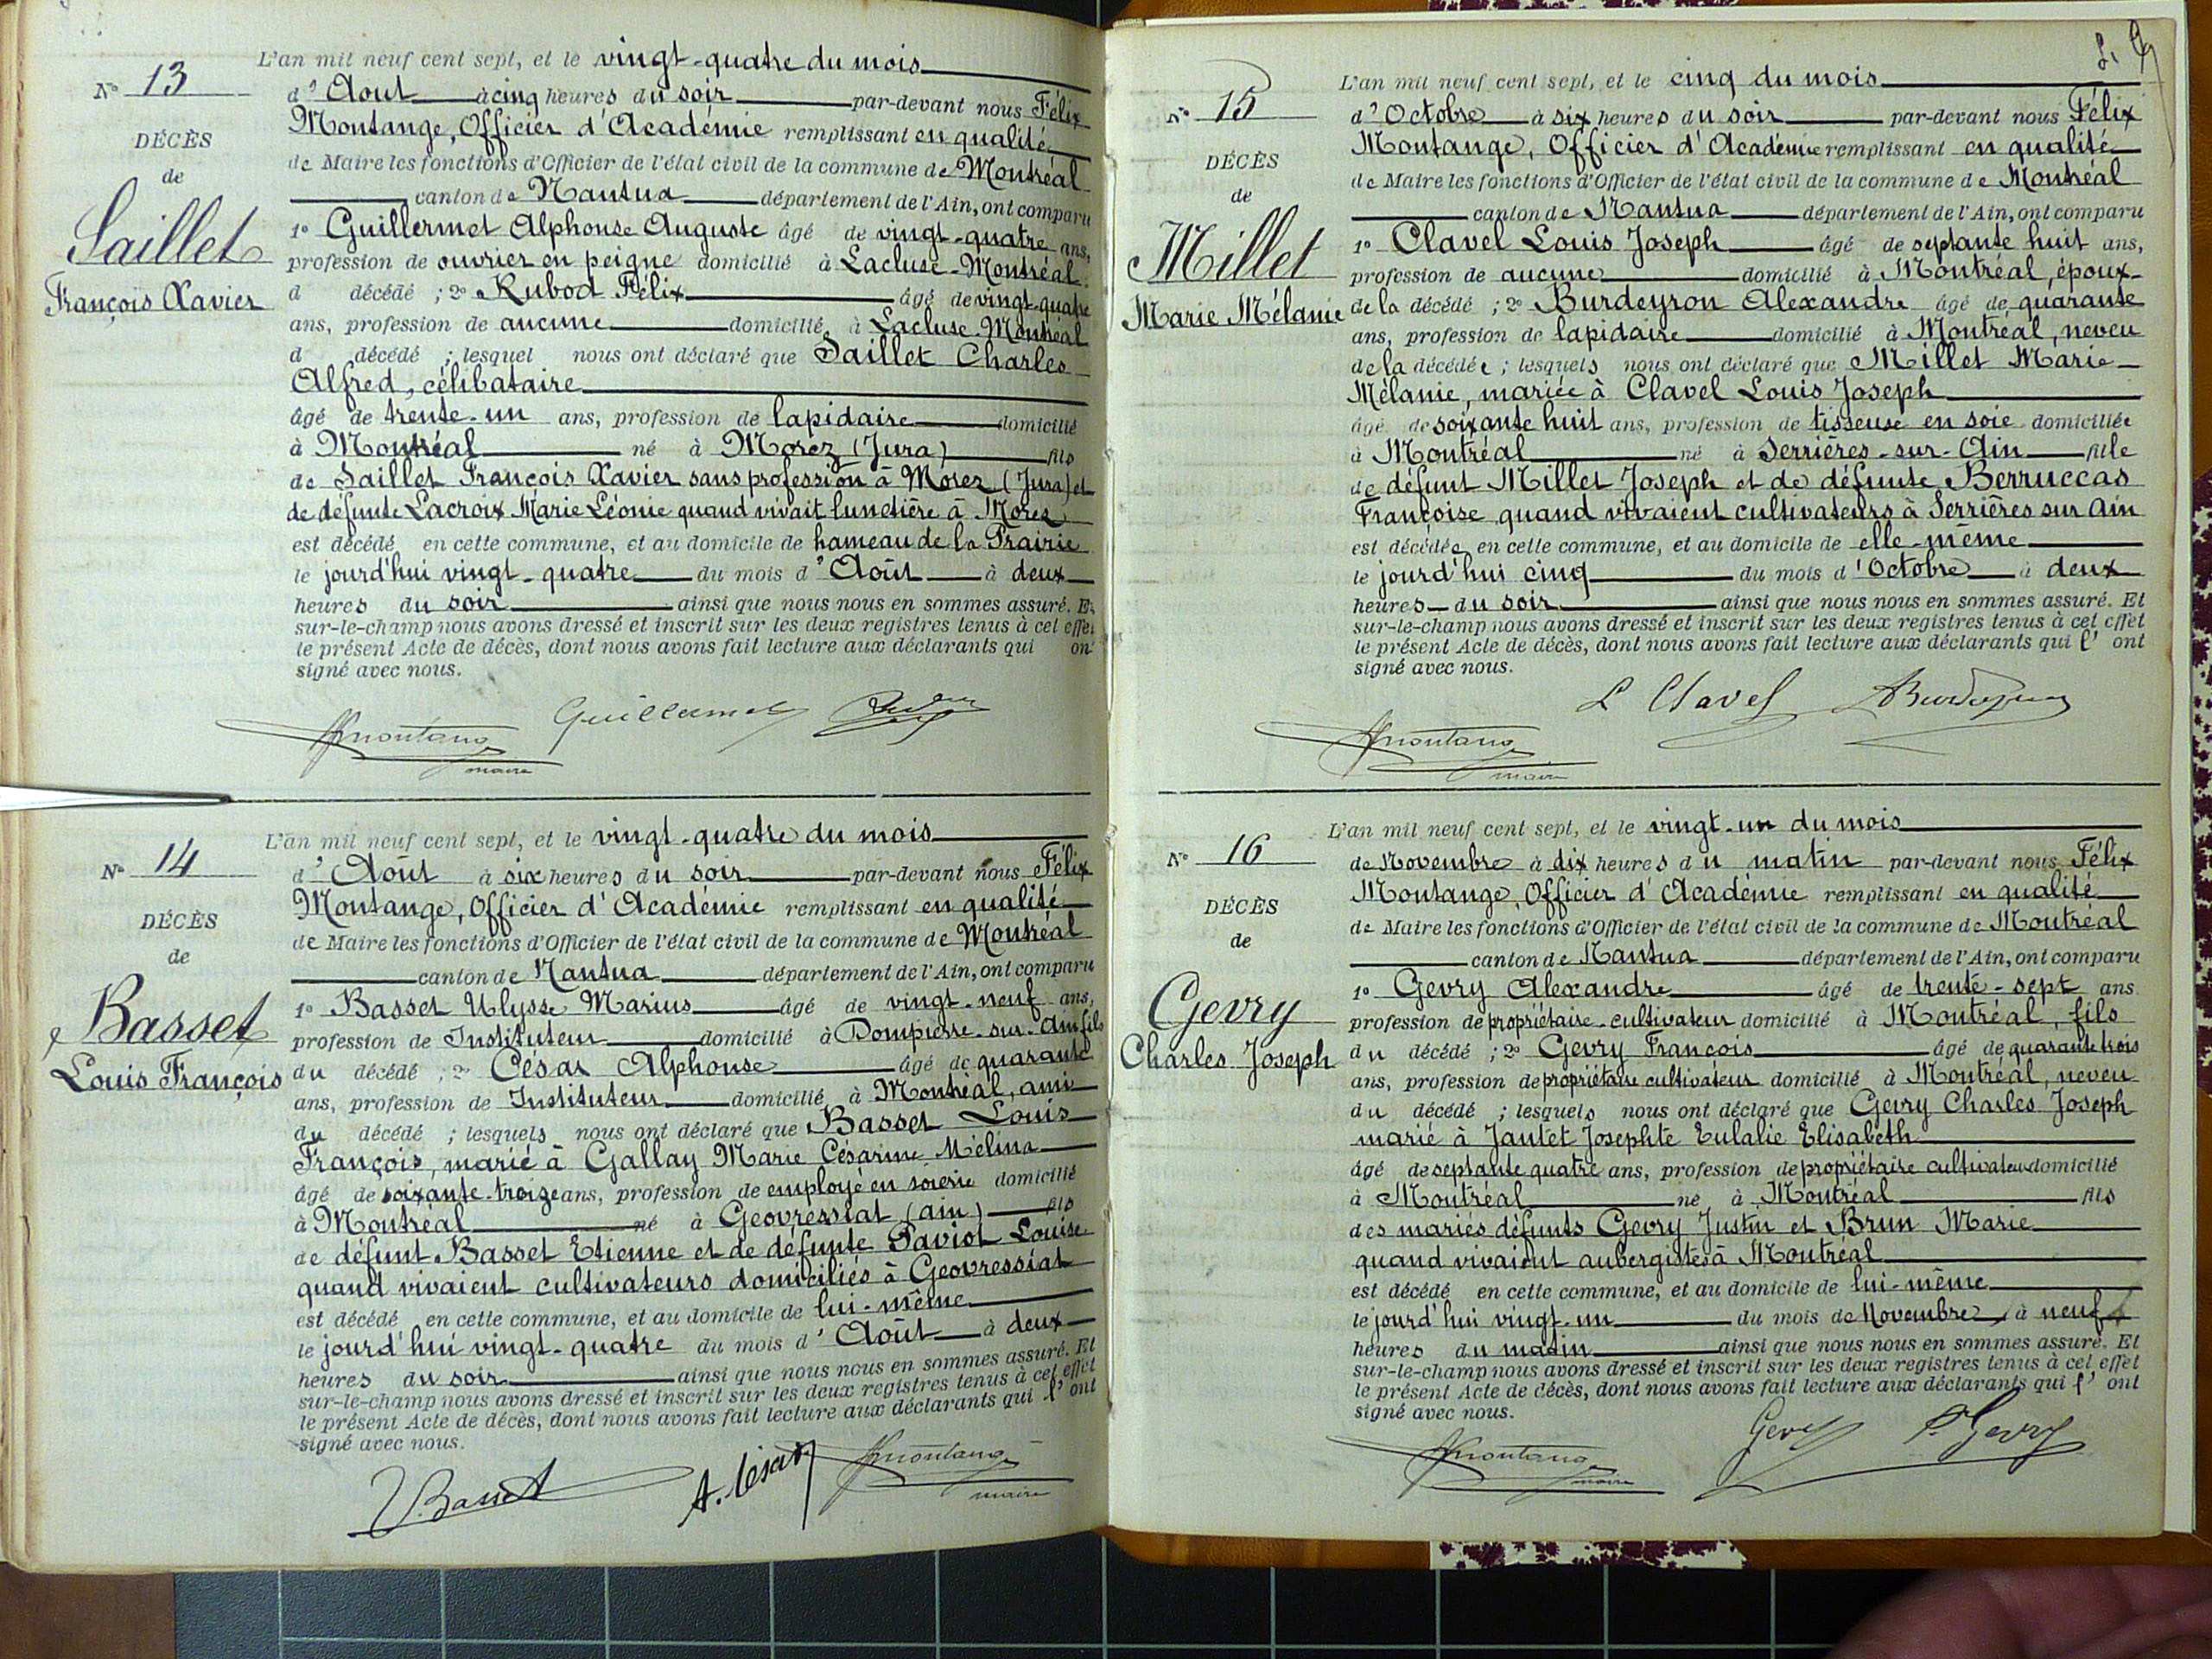 L'an mil neuf cent sept, et le vingt-quatre du mois
N° 13
d'Aout à cinq heures du soir par-devant nous Félix
Montange, Officier d'Académie remplissant en qualité
DÉCÈS
de Maire les fonctions d'Officier de l'état civil de la commune de Montréal
de
canton de Nantua département de l'Ain, ont comparu
Saillet
1° Guillermet Alphonse Auguste âgé de vingt-quatre ans,
profession de ouvrier en peigne domicilié à Lacluse-Montréal
François Xavier
d décédé ; 2° Rubod Félix âgé de vingt-quatre
ans, profession de aucune domicilié à Lacluse-Montréal
d décédé ; lesquel nous ont déclaré que Saillet Charles
Alfred, célibataire
âgé de trente-un ans, profession de lapidaire domicilié
à Montréal né à Morez (Jura) fils
de Saillet François Xavier sans profession à Morez (Jura) et
de défunte Lacroix Marie Léonie quand vivait lunetière à Morez
est décédé en cette commune, et au domicile de hameau de la Prairie
le jourd'hui vingt-quatre du mois d'Août à deux
heures du soir ainsi que nous nous en sommes assuré. Et
sur-le-champ nous avons dressé et inscrit sur les deux registres tenus à cet effet
le présent Acte de décès, dont nous avons fait lecture aux déclarants qui ont
signé avec nous.
Montange Guillermet
maire
L'an mil neuf cent sept, et le vingt-quatre du mois
N° 14
d'Août à six heures du soir par-devant nous Félix
Montange, Officier d'Académie remplissant en qualité
DÉCÈS
de Maire les fonctions d'Officier de l'état civil de la commune de Montréal
de
canton de Nantua département de l'Ain, ont comparu
Basset
1° Basset Ulysse Marius âgé de vingt-neuf ans,
profession de Instituteur domicilié à Dompierre-sur-Ain fils
Louis François
du décédé ; 2° César Alphonse âgé de quarante
ans, profession de Instituteur domicilié à Montréal, ami
du décédé ; lesquels nous ont déclaré que Basset Louis
François, marié à Gallay Marie Césarine Mélina
âgé de soixante-treize ans, profession de employé en soierie domicilié
à Montréal né à Geovressiat (ain) fils
de défunt Basset Etienne et de défunte Paviot Louise
quand vivaient cultivateurs domiciliés à Geovressiat
est décédé en cette commune, et au domicile de lui-même
le jourd'hui vingt-quatre du mois d'Août à deux
heures du soir ainsi que nous nous en sommes assuré. Et
sur-le-champ nous avons dressé et inscrit sur les deux registres tenus à cet effet
le présent Acte de décès, dont nous avons fait lecture aux déclarants qui l'ont
signé avec nous.
Basset A. César Montange
maire
L'an mil neuf cent sept, et le cinq du mois
N° 15
d'Octobre à six heures du soir par-devant nous Félix
Montange, Officier d'Académie remplissant en qualité
DÉCÈS
de Maire les fonctions d'Officier de l'état civil de la commune de Montréal
de
canton de Nantua département de l'Ain, ont comparu
Millet
1° Clavel Louis Joseph âgé de septante huit ans,
profession de aucune domicilié à Montréal, époux
Marie Mélanie
de la décédé ; 2° Burdeyron Alexandre âgé de quarante
ans, profession de lapidaire domicilié à Montréal, neveu
de la décédée ; lesquels nous ont déclaré que Millet Marie
Mélanie, mariée à Clavel Louis Joseph
âgé de soixante huit ans, profession de tisseuse en soie domiciliée
à Montréal né à Serrières-sur-Ain fille
de défunt Millet Joseph et de défunte Berruccas
Françoise quand vivaient cultivateurs à Serrières sur Ain
est décédée en cette commune, et au domicile de elle-même
le jourd'hui cinq du mois d'Octobre à deux
heures du soir ainsi que nous nous en sommes assuré. Et
sur-le-champ nous avons dressé et inscrit sur les deux registres tenus à cet effet
le présent Acte de décès, dont nous avons fait lecture aux déclarants qui l'ont
signé avec nous.
L Clavel ABurdeyron
Montange
maire
L'an mil neuf cent sept, et le vingt-un du mois
N° 16
de Novembre à dix heures du matin par-devant nous Félix
Montange, Officier d'Académie remplissant en qualité
DÉCÈS
de Maire les fonctions d'Officier de l'état civil de la commune de Montréal
de
canton de Nantua département de l'Ain, ont comparu
Gevry
1° Gevry Alexandre âgé de trente-sept ans
profession de propriétaire-cultivateur domicilié à Montréal, fils
Charles Joseph
du décédé ; 2° Gevry François âgé de quarante trois
ans, profession de propriétaire cultivateur domicilié à Montréal, neveu
du décédé ; lesquels nous ont déclaré que Gevry Charles Joseph
marié à Jantet Josephte Eulalie Elisabeth
âgé de septante quatre ans, profession de propriétaire cultivateur domicilié
à Montréal né à Montréal fils
des mariés défunts Gevry Justin et Brun Marie
quand vivaient aubergistes à Montréal
est décédé en cette commune, et au domicile de lui-même
le jourd'hui vingt-un du mois de Novembre à neuf
heures du matin ainsi que nous nous en sommes assuré. Et
sur-le-champ nous avons dressé et inscrit sur les deux registres tenus à cet effet
le présent Acte de décès, dont nous avons fait lecture aux déclarants qui l'ont
signé avec nous.
Gevry Gevry
Montange
maire